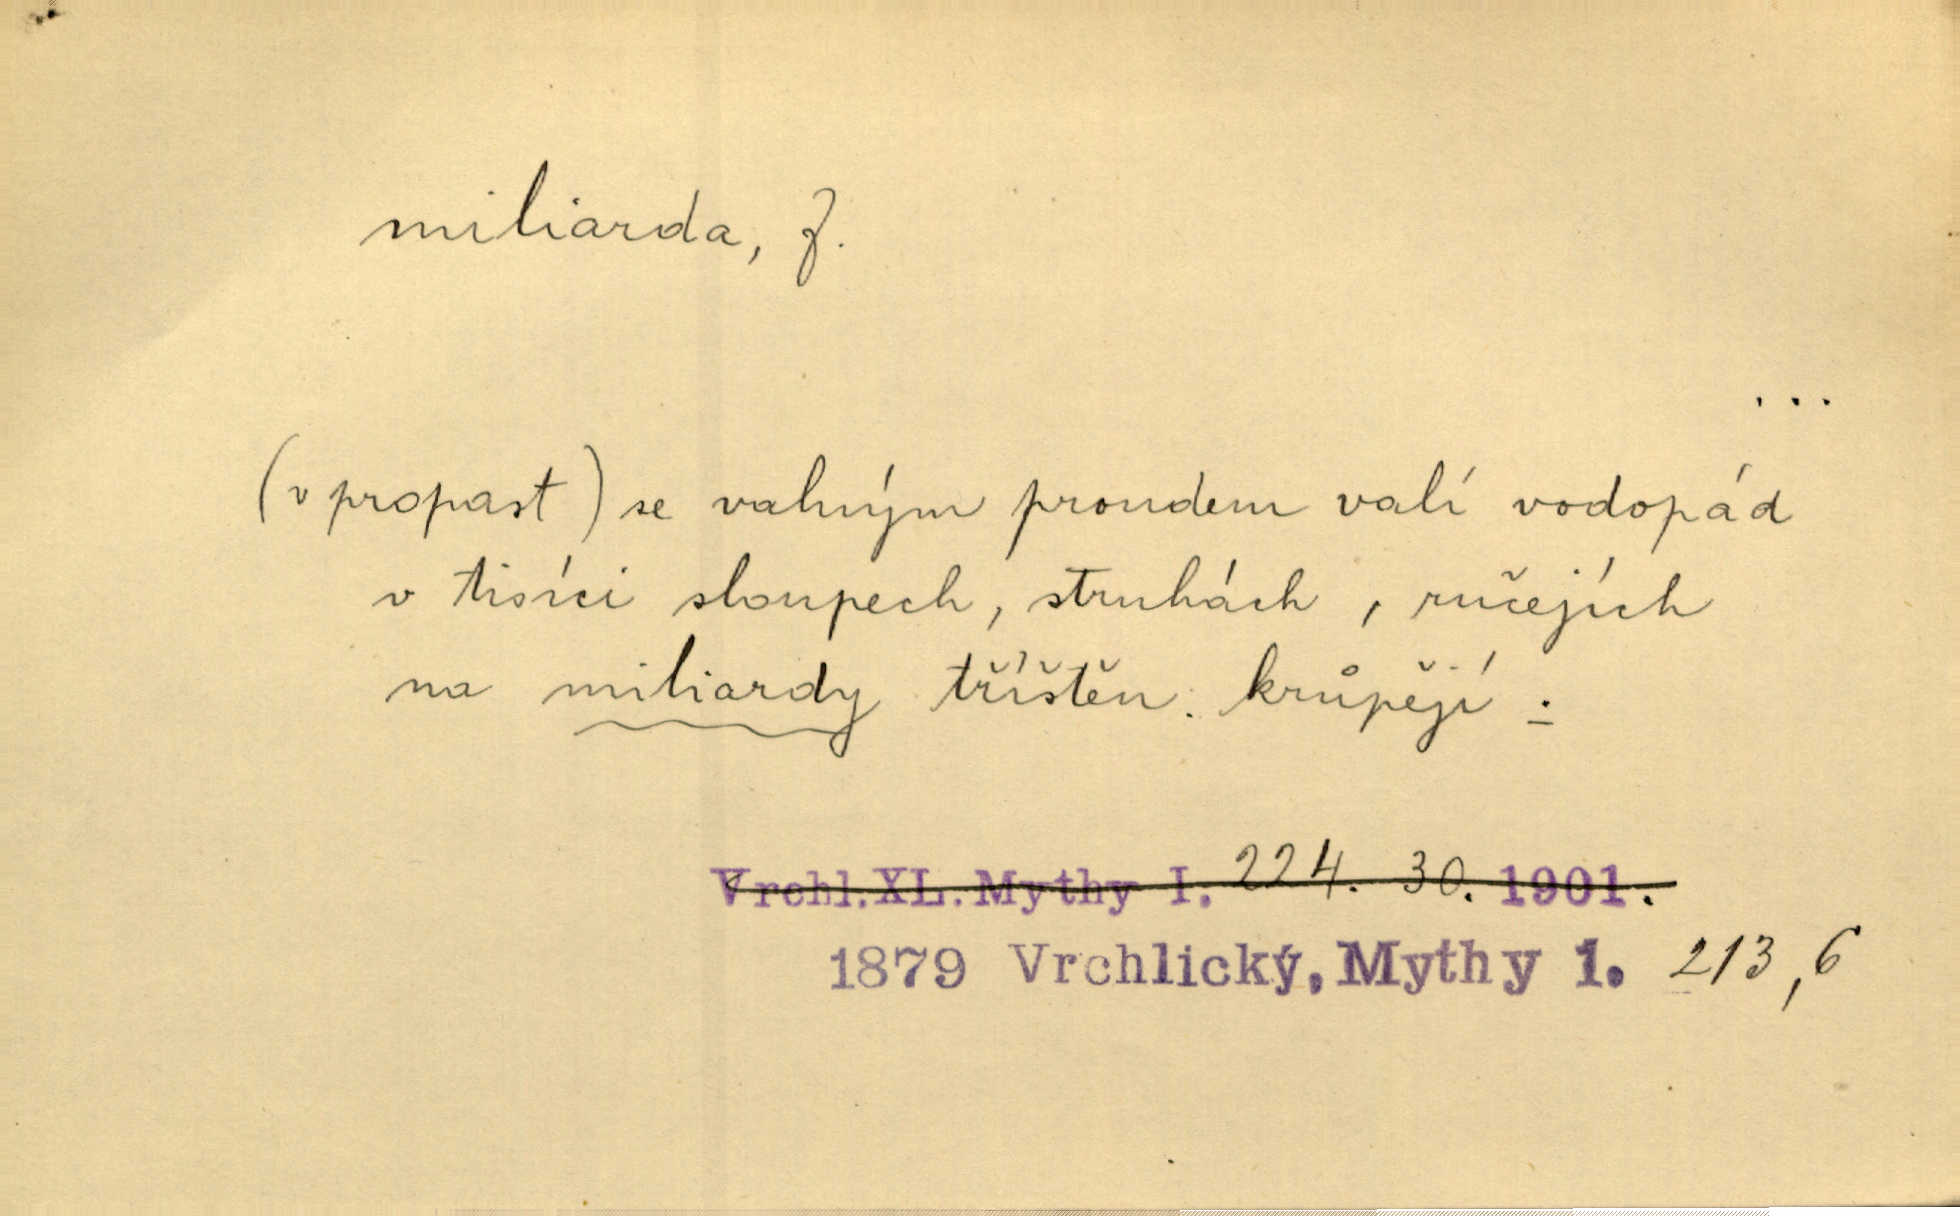 miliarda, f.
...
(v propast) se valným proudem valí vodopád
v tisíci sloupech, struhách, ručejích
na miliardy tříštěn. krůpějí :
Vrchl. XL. Mythy I. 224. 30. 1901.
1879 Vrchlický, Mythy 1. 213,6